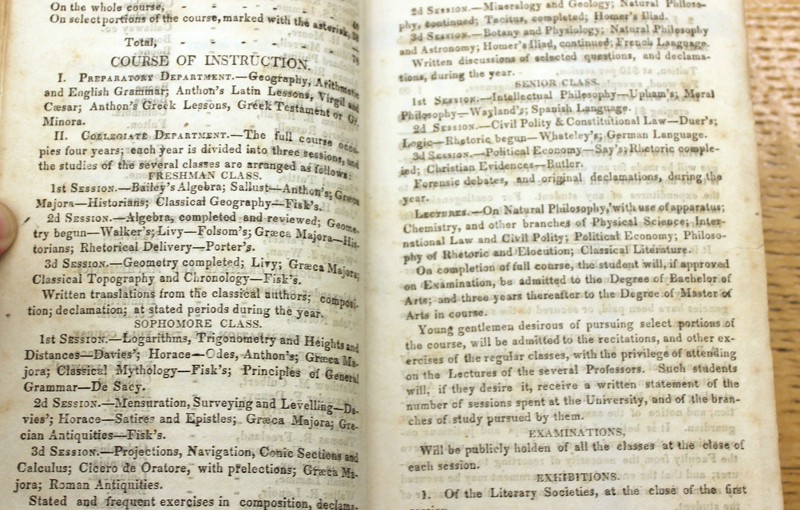 On the whole course,
On select portions of the course, marked with the asterisk,
Total,
COURSE OF INSTRUCTION.
I. PREPARATORY DEPARTMENT.—Geography, Arithmetic
and English Grammar; Anthon's Latin Lessons, Virgil and
Cæsar; Anthon's Greek Lessons, Greek Testament or Gr.
Minora.
II. COLLEGIATE DEPARTMENT.—The full course occu-
pies four years; each year is divided into three sessions, and
the studies of the several classes are arranged as follows:
FRESHMAN CLASS.
1st SESSION.—Bailey's Algebra; Sallust—Anthon's; Græca
Majora—Historians; Classical Geography—Fisk's.
2d SESSION.—Algebra, completed and reviewed; Geome-
try begun—Walker's; Livy—Folsom's; Græca Majora—His-
torians; Rhetorical Delivery—Porter's.
3d SESSION.—Geometry completed; Livy; Græca Majora;
Classical Topography and Chronology—Fisk's.
Written translations from the classical authors; composi-
tion; declamation; at stated periods during the year.
SOPHOMORE CLASS.
1st SESSION.—Logarithms, Trigonometry and Heights and
Distances—Davies'; Horace—Odes, Anthon's; Græca Ma-
jora; Classical Mythology—Fisk's; Principles of General
Grammar—De Sacy.
2d SESSION.—Mensuration, Surveying and Levelling—Da-
vies'; Horace—Satires and Epistles; Græca Majora; Gre-
cian Antiquities—Fisk's.
3d SESSION.—Projections, Navigation, Conic Sections and
Calculus; Cicero de Oratore, with prelections; Græca Ma-
jora; Roman Antiquities.
Stated and frequent exercises in composition, declama-
2d SESSION.—Mineralogy and Geology; Natural Philoso-
phy, continued; Tacitus, completed; Homer's Iliad.
3d SESSION.—Botany and Physiology; Natural Philosophy
and Astronomy; Homer's Iliad, continued; French Language.
Written discussions of selected questions, and declama-
tions, during the year.
SENIOR CLASS.
1st SESSION.—Intellectual Philosophy—Upham's; Moral
Philosophy—Wayland's; Spanish Language.
2d SESSION.—Civil Polity & Constitutional Law—Duer's;
Logic—Rhetoric begun—Whateley's; German Language.
3d SESSION.—Political Economy—Say's; Rhetoric comple-
ted; Christian Evidences—Butler.
Forensic debates, and original declamations, during the
year.
LECTURES.—On Natural Philosophy, with use of apparatus;
Chemistry, and other branches of Physical Science; Inter-
national Law and Civil Polity; Political Economy; Philoso-
phy of Rhetoric and Elocution; Classical Literature.
On completion of full course, the student will, if approved
on Examination, be admitted to the Degree of Bachelor of
Arts; and three years thereafter to the Degree of Master of
Arts in course.
Young gentlemen desirous of pursuing select portions of
the course, will be admitted to the recitations, and other ex-
ercises of the regular classes, with the privilege of attending
on the Lectures of the several Professors. Such students
will, if they desire it, receive a written statement of the
number of sessions spent at the University, and of the bran-
ches of study pursued by them.
EXAMINATIONS,
Will be publicly holden of all the classes at the close of
each session.
EXHIBITIONS.
1. Of the Literary Societies, at the close of the first